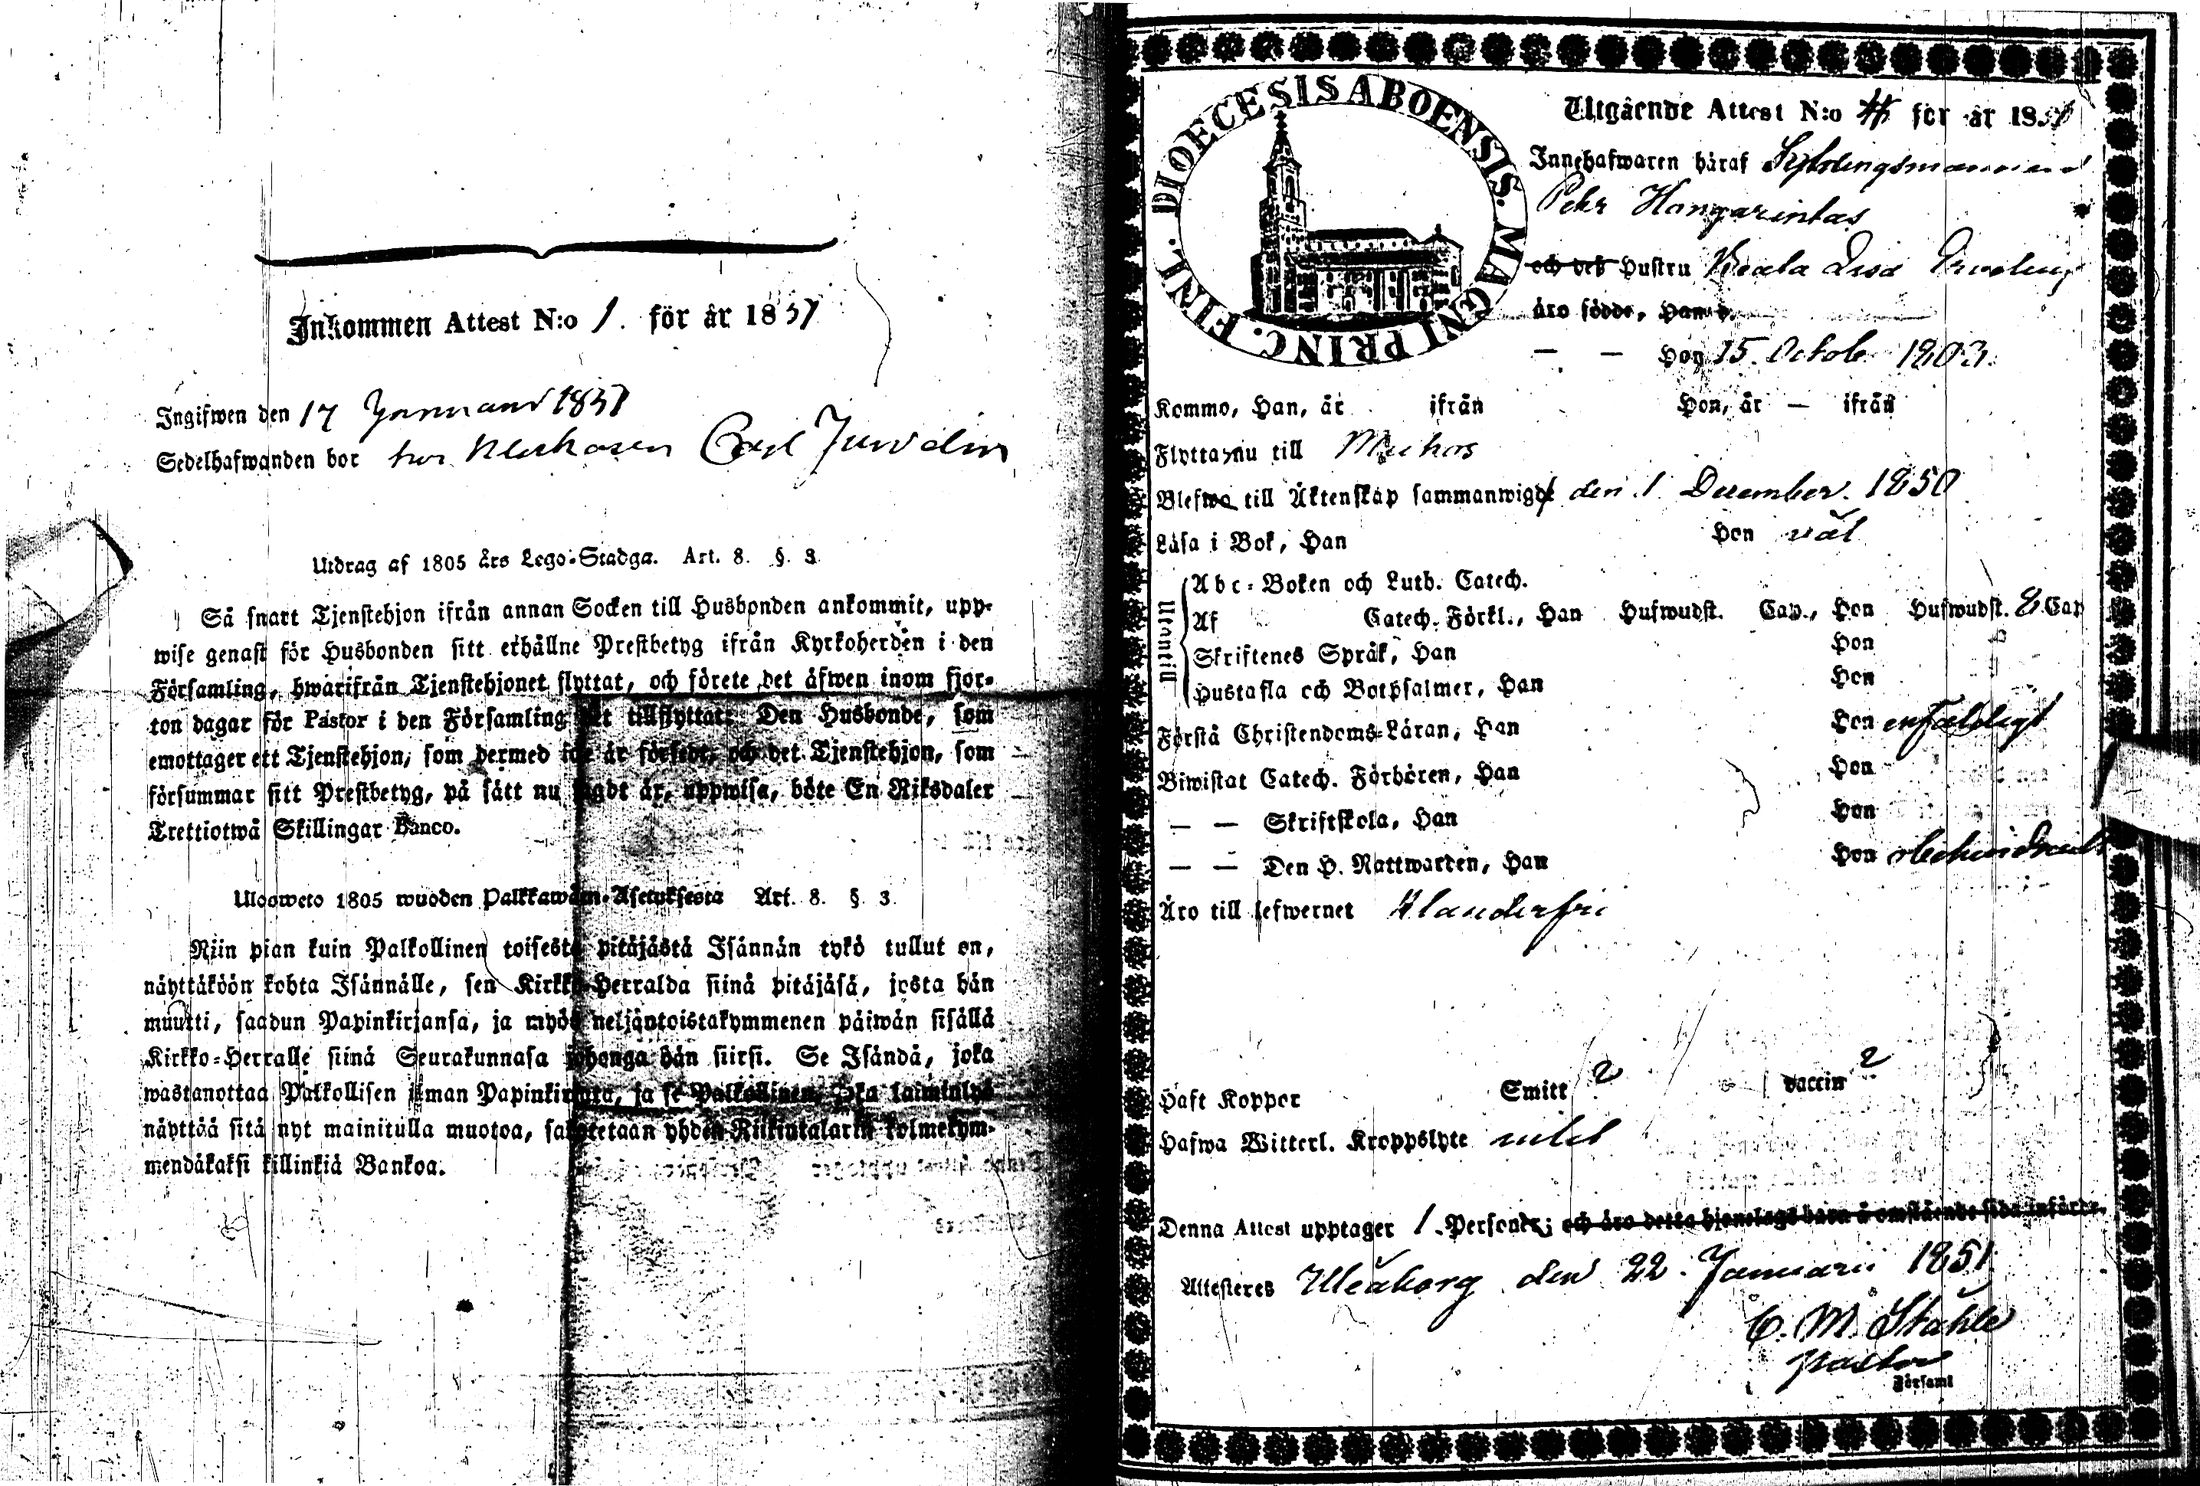 Inkommen Attest N:o 1. för år 1851
Ingifwen den 17 Januari 1851
Sedelhafwanden bor hos Carl Junelin
Utdrag af 1805 års Lego-Stadga. Art. 8. §. 3
Så snart Tjenstehjon ifrån annan Socken till Husbonden ankommit, upp-
wise genast för Husbonden sitt erhållne Prestbetyg ifrån Kyrkoherden i den
Församling, hwarifrån Tjenstehjonet flyttat, och förete det äfwen inom fjor-
ton dagar för Pastor i den Församling det tillflyttat: Den Husbonde, som
emottager ett Tjenstehjon, som dermed icke är försedt, och det Tjenstehjon, som
försummar sitt Prestbetyg, på sätt nu sagdt är, uppwisa, böte En Riksdaler
Trettiotwå Skillingar Banco.
Ulosweto 1805 wuoden Palkkawäen-Asetuksesta Art. 8. §. 3.
Niin pian kuin Palkollinen toisesta pitäjästä Isännän tykö tullut on,
näyttäköön kohta Isännälle, sen Kirkko-Herralda siinä pitäjäsä, josta hän
muutti, saadun Papinkirjansa, ja myös neljäntoistakymmenen päiwän sisällä
Kirkko-Herralle siinä Seurakunnasa johonga hän siirsi. Se Isändä, joka
wastanottaa Palkollisen ilman Papinkirjata, ja se Palkollinen, joka laiminlyö
näyttää sitä nyt mainitulla muotoa, sakotetaan yhden Riikintalarin kolmekym-
mendäkaksi killinkiä Bankoa.
DIOECESIS ABOENSIS. MAGNI PRINC. FINL.
Utgående Attest N:o för år 1851
Innehafwaren häraf
Pehr
och des Hustru Beata Lisa
äro födde, Han d.
— — Hon 15. Octob. 1803.
Kommo, Han, år ifrån Hon, år — ifrån
Flytta nu till Muhos
Blefwo till Äktenskap sammanwigde den 1 December. 1850
Läsa i Bok, Han Hon wäl
Utantill
Abc-Boken och Luth. Catech.
Af Catech. Förkl., Han Hufwudst. Cap., Hon Hufwudst. 8 Cap
Skriftenes Språk, Han Hon
Hustafla och Botpsalmer, Han Hon
Förstå Christendoms-Läran, Han Hon enfaldigt
Biwistat Catech. Förhören, Han Hon
— — Skriftskola, Han Hon
— — Den H. Nattwarden, Han Hon
Äro till lefwernet klanderfri
Haft Koppor Smitt 2 vaccin 2
Hafwa Witterl. Kroppslyte intet
Denna Attest upptager 1. Personer; och äro detta hjonelags barn å omstående sida införde.
Attesteres Uleåborg den 22. Januarii 1851
C. M. Ståhle
pastor
Församl